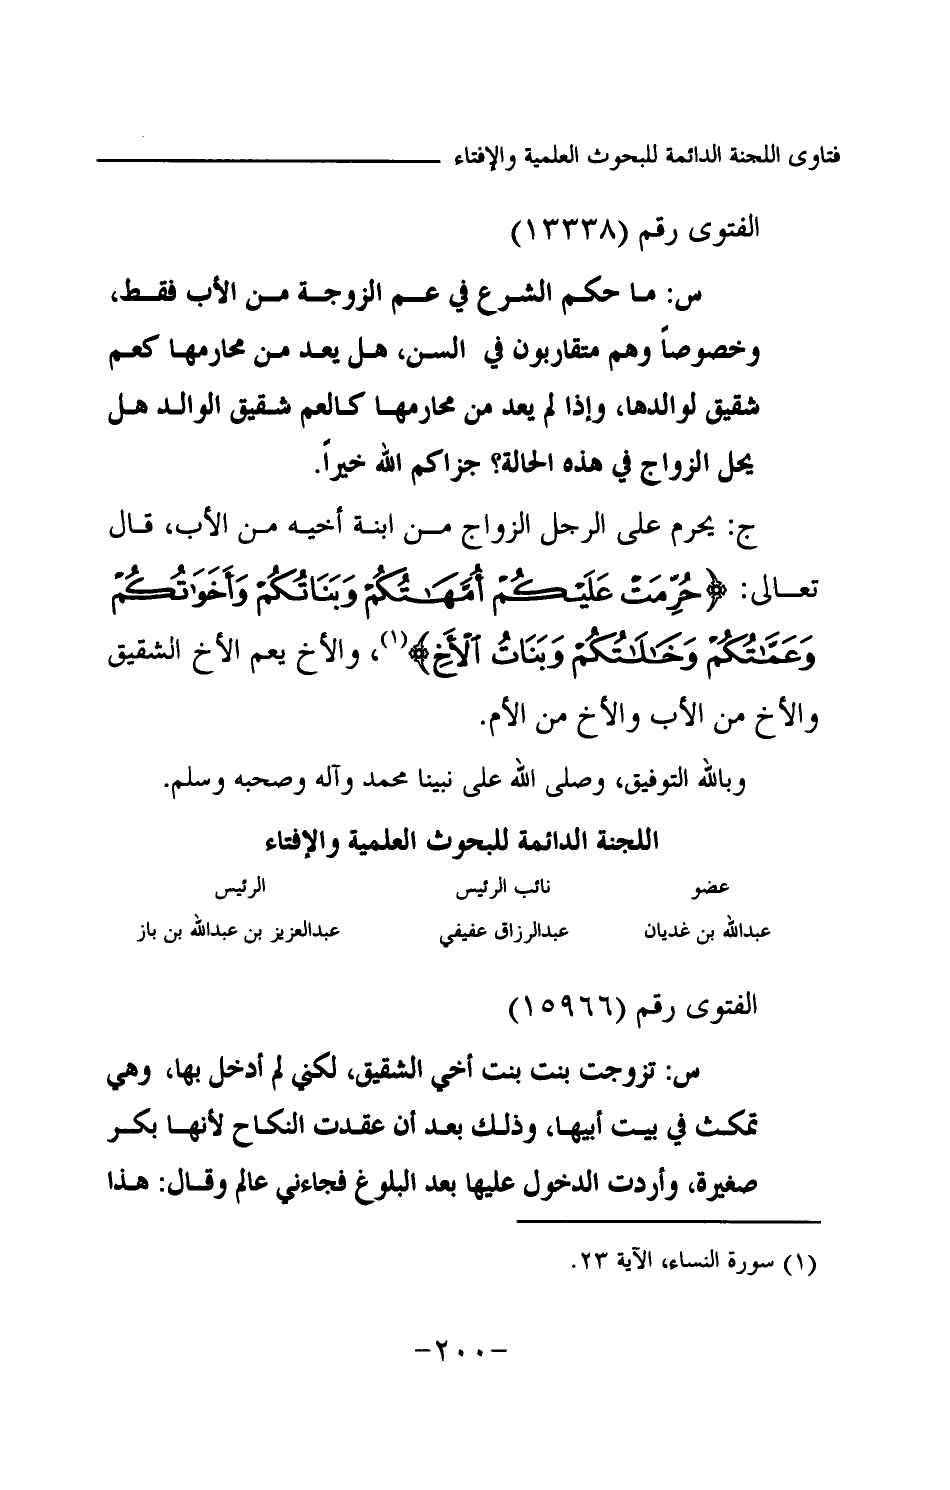 فتاوى اللجنة الدائمة للبحوث العلمية والإفتاء
الفتوى رقم (١٣٣٣٨)
س: ما حكم الشرع في عم الزوجة من الأب فقط،
وخصوصاً وهم متقاربون في السن، هل يعد من محارمها كعم
شقيق لوالدها، وإذا لم يعد من محارمها كالعم شقيق الوالد هل
يحل الزواج في هذه الحالة؟ جزاكم الله خيراً.
ج: يحرم على الرجل الزواج من ابنة أخيه من الأب، قال
تعالى: ﴿حُرِّمَتْ عَلَيْكُمْ أُمَّهَٰتُكُمْ وَبَنَاتُكُمْ وَأَخَوَٰتُكُمْ
وَعَمَّٰتُكُمْ وَخَٰلَٰتُكُمْ وَبَنَاتُ ٱلْأَخِ﴾(١)، والأخ يعم الأخ الشقيق
والأخ من الأب والأخ من الأم.
وبالله التوفيق، وصلى الله على نبينا محمد وآله وصحبه وسلم.
اللجنة الدائمة للبحوث العلمية والإفتاء
عضو نائب الرئيس الرئيس
عبدالله بن غديان عبدالرزاق عفيفي عبدالعزيز بن عبدالله بن باز
الفتوى رقم (١٥٩٦٦)
س: تزوجت بنت بنت أخي الشقيق، لكني لم أدخل بها، وهي
تمكث في بيت أبيها، وذلك بعد أن عقدت النكاح لأنها بكر
صغيرة، وأردت الدخول عليها بعد البلوغ فجاءني عالم وقال: هذا
(١) سورة النساء، الآية ٢٣.
-٢٠٠-